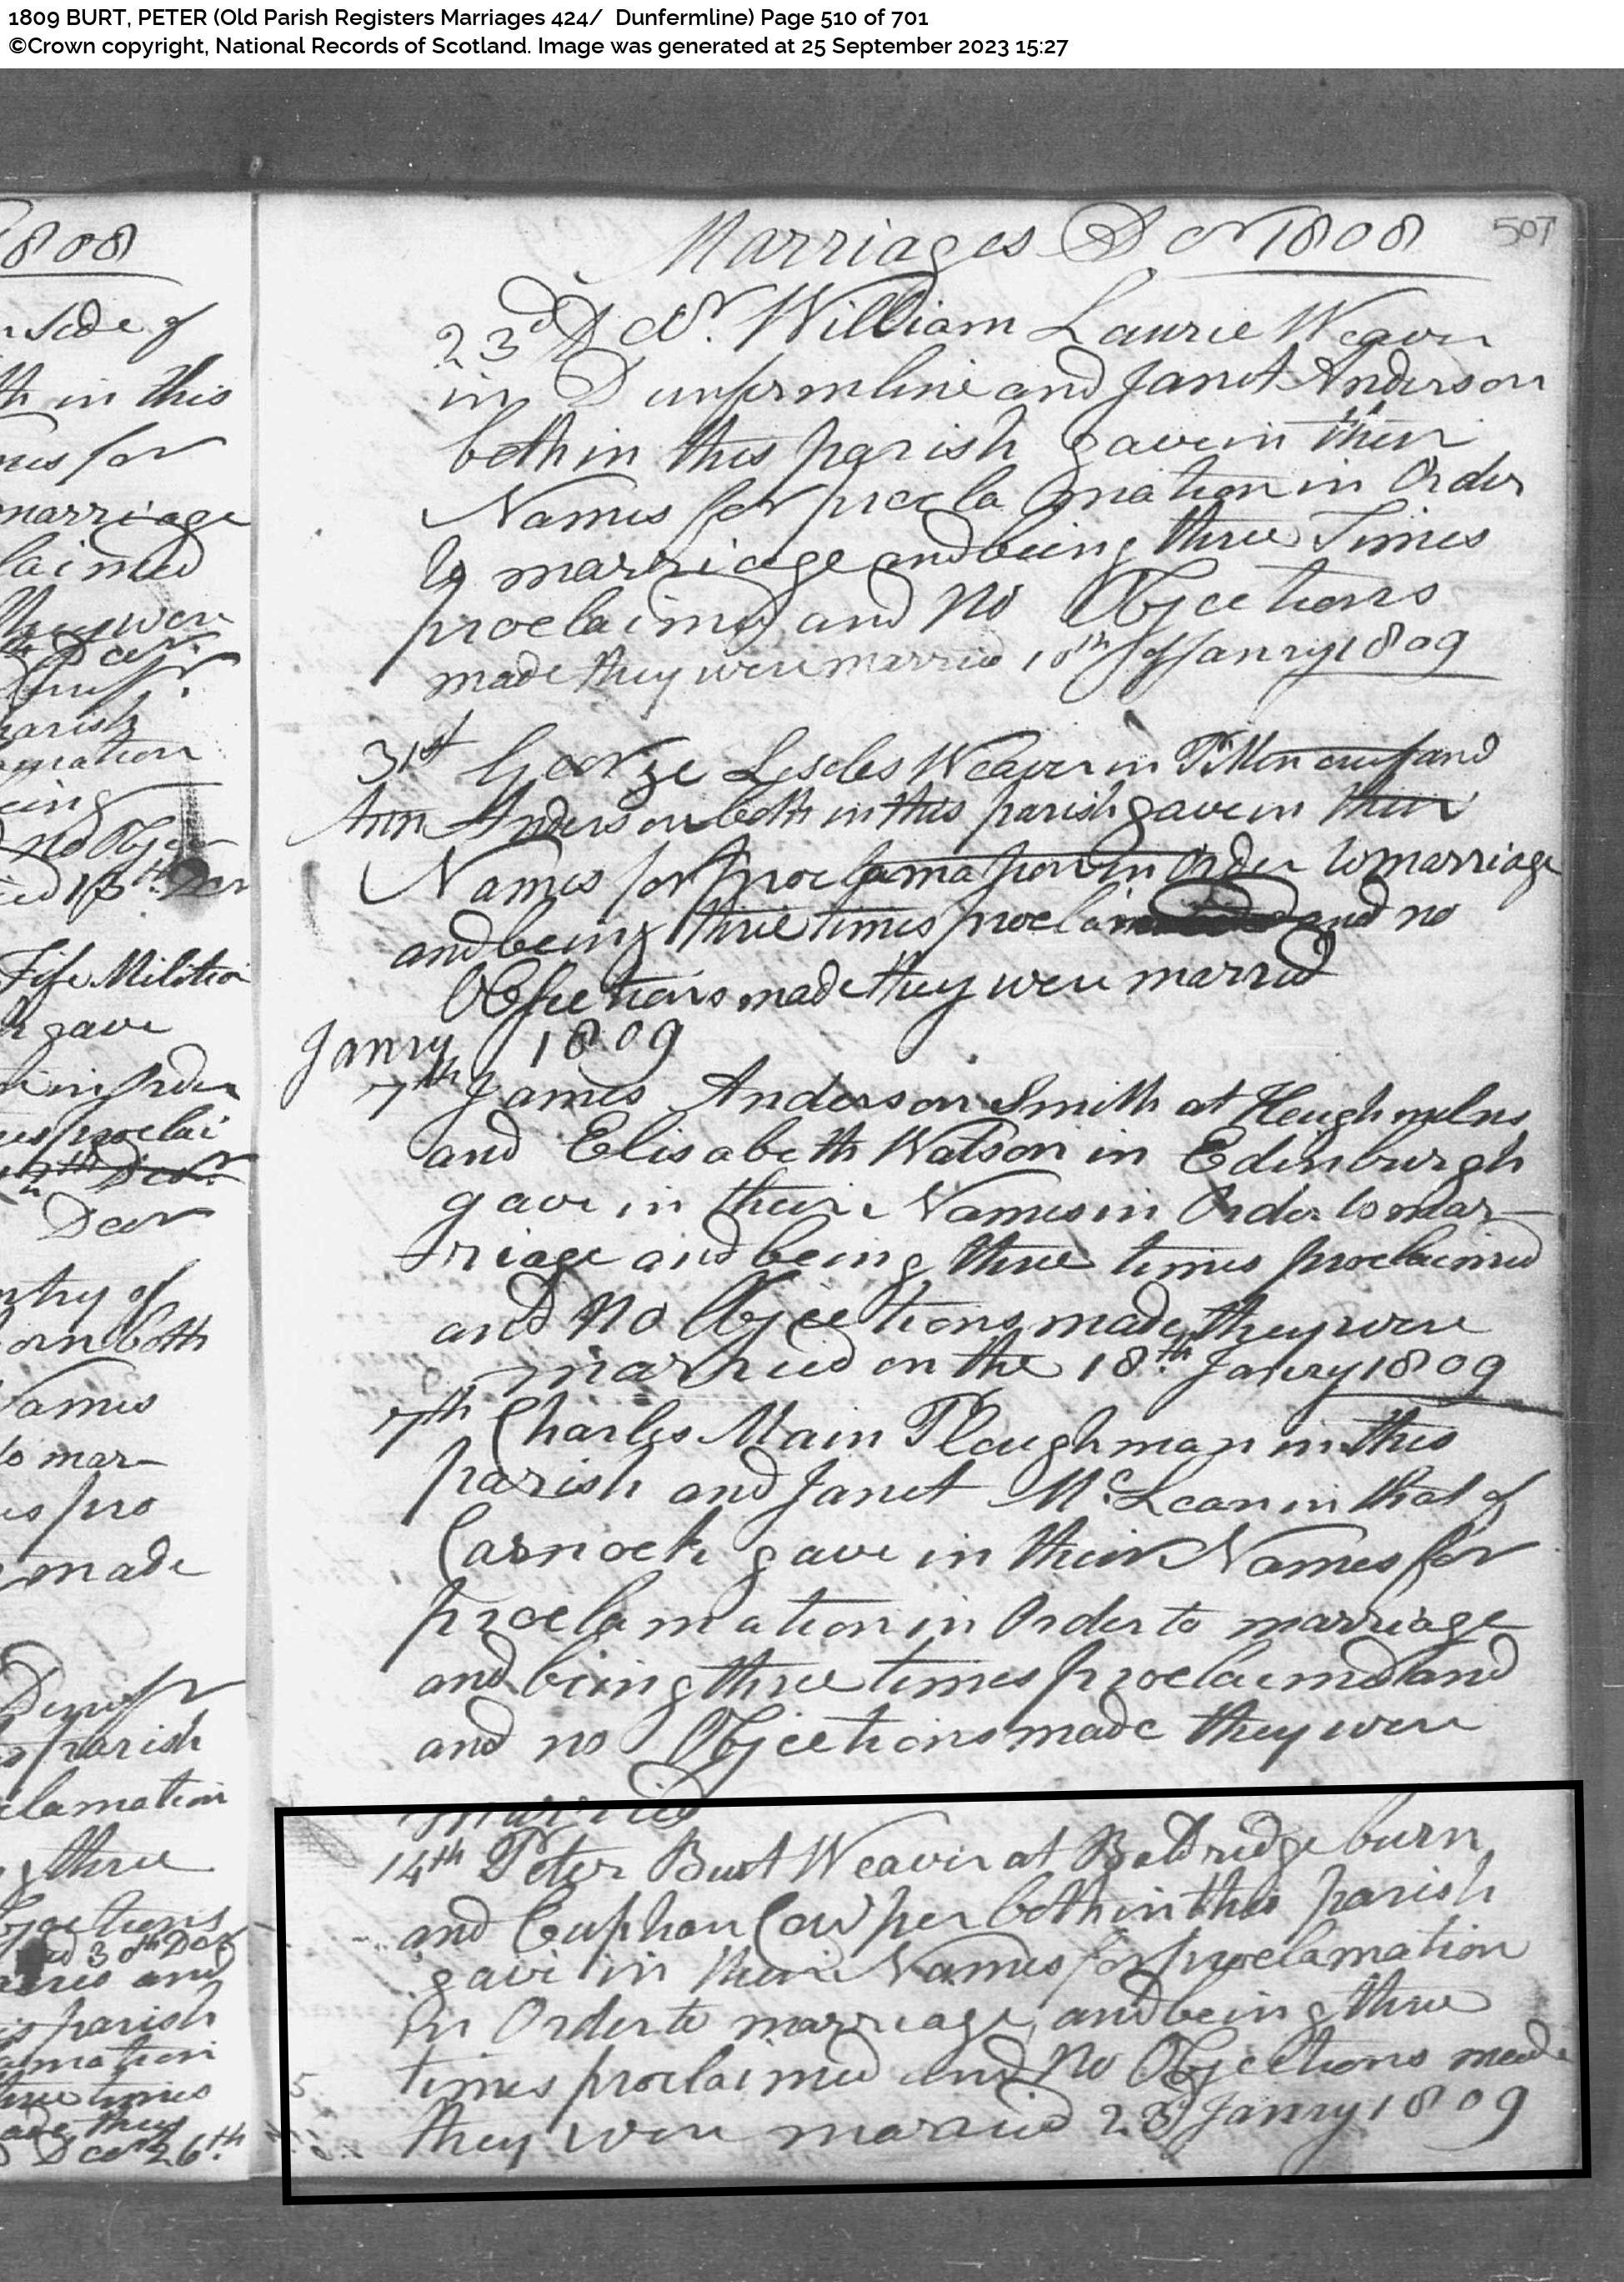 1809 BURT, PETER (Old Parish Registers Marriages 424/ Dunfermline) Page 510 of 701
©Crown copyright, National Records of Scotland. Image was generated at 25 September 2023 15:27
1808
Side of
th in this
for
marriage
laimed
they were
Decr.
parish
mation
eing
no Obje
Fife Militia
gave
in Order
proclai
Decr
ntry of
both
Names
to mar-
pro
made
parish
clamation
three
Objections
30th Decr
and
parish
amation
three times
made they
Decr 26th
Marriages Decr 1808
507
23d Decr. William Laurie Weaver
in Dunfermline and Janet Anderson
both in this parish gave in their
Names for procla mation in Order
to marriage and being three Times
proclaimed and No Objections
made they were married 10th of Janry 1809
31st George Weaver in and
Ann Anderson both in this parish gave in their
Names for proclamation in Order to marriage
and being three times proclaim and no
Objections made they were married
Janry 1809
7th James Anderson Smith at Heugh milns
and Elisabeth Watson in Edinburgh
gave in their Names in Order to mar-
riage and being three times proclaimed
and No Objections made they were
married on the 18th Janry 1809
7th Charles Main Ploughman in this
parish and Janet McLean in that of
Carnock gave in their Names for
proclamation in Order to marriage
and being three times proclaimd and
and no Objections made they were
married
14th Peter Burt Weaver at Baldridge burn
and Euphan Cowper both in this parish
gave in their Names for proclamation
in Order to marriage and being three
times proclaimed and No Objections made
they were married 23d Janry 1809